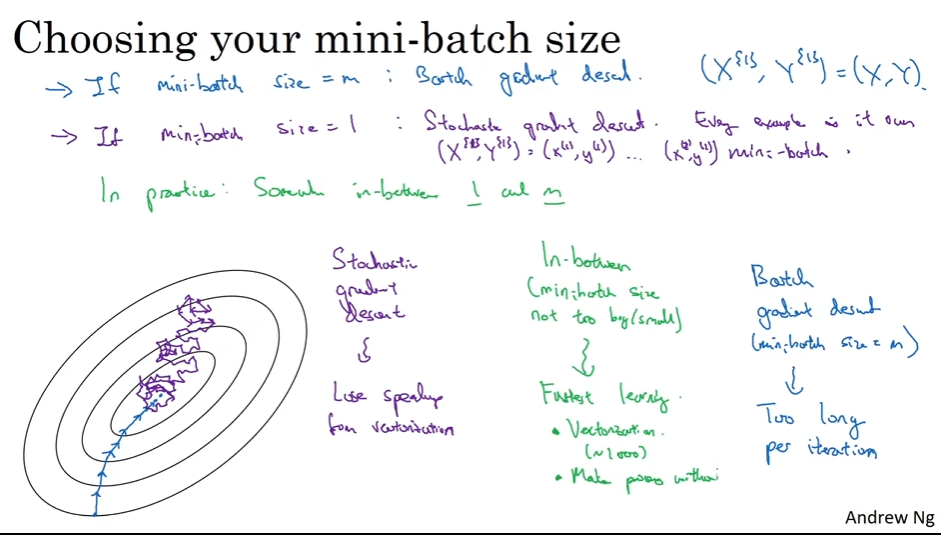 Choosing your mini-batch size
→ If mini-batch size = m : Batch gradient descent. (X^{1}, Y^{1}) = (X, Y).
→ If mini-batch size = 1 : Stochastic gradient descent. Every example is it own
(X^{1}, Y^{1}) = (x^(1), y^(1)) ... mini-batch.
In practice: Somewhere in-between 1 and m
Stochastic
gradient
descent
Lose speedup
from vectorization
In-between
(mini-batch size
not too big/small)
Fastest learning.
• Vectorization.
(~1000)
• Make progress without
Batch
gradient descent
(mini-batch size = m)
Too long
per iteration
Andrew Ng